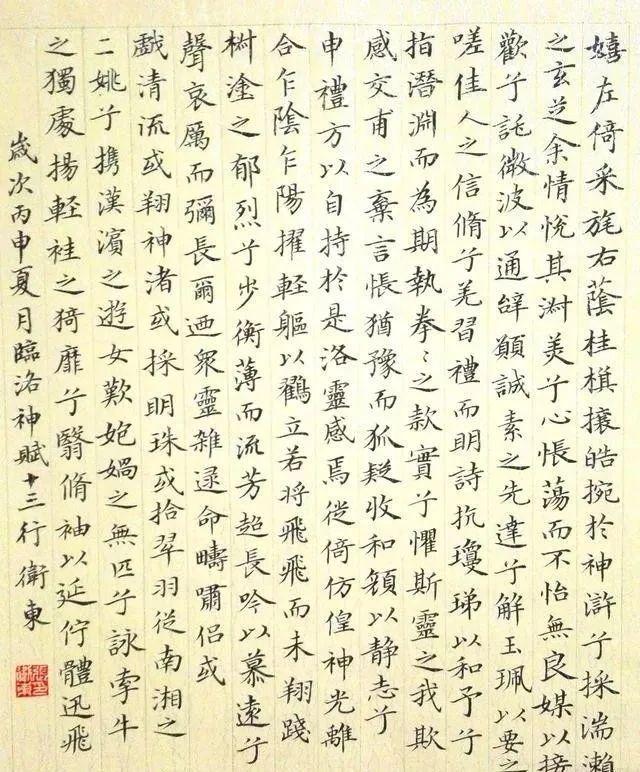 嬉左倚采旄右蔭桂棋攘皓捥於神滸兮採湍瀨
之玄芝余情恱其淋美兮心悵蕩而不怡無良媒以接
歡兮託微波以通辝願誠素之先達兮解玉珮以要之
嗟佳人之信脩兮羌習禮而明詩抗瓊珶以和予兮
指潛淵而為期執拳〻之款實兮懼斯靈之我欺
感交甫之棄言悵猶豫而狐疑收和顔以静志兮
申禮方以自持於是洛靈感焉從倚仿偟神光離
合乍陰乍陽擢軽軀以鸖立若将飛飛而未翔踐
椒塗之郁烈兮步衡薄而流芳超長吟以慕遠兮
聲哀厲而彌長爾迺衆靈雑逯命疇嘯侣或
戲清流或翔神渚或採明珠或拾翠羽從南湘之
二姚兮携漢濱之遊女歎匏媧之無匹兮詠牽牛
之獨處揚軽袿之猗靡兮翳脩袖以延佇體迅飛
嵗次丙申夏月臨洛神賦十三行衛東